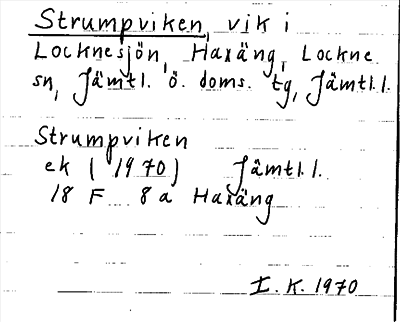 Strumpviken, vik i
Locknesjön, Haxäng, Lockne
sn, Jämtl. ö. doms. tg, Jämtl.l.
Strumpviken
ek (1970) Jämtl.l.
18 F 8a Haxäng
I.K. 1970